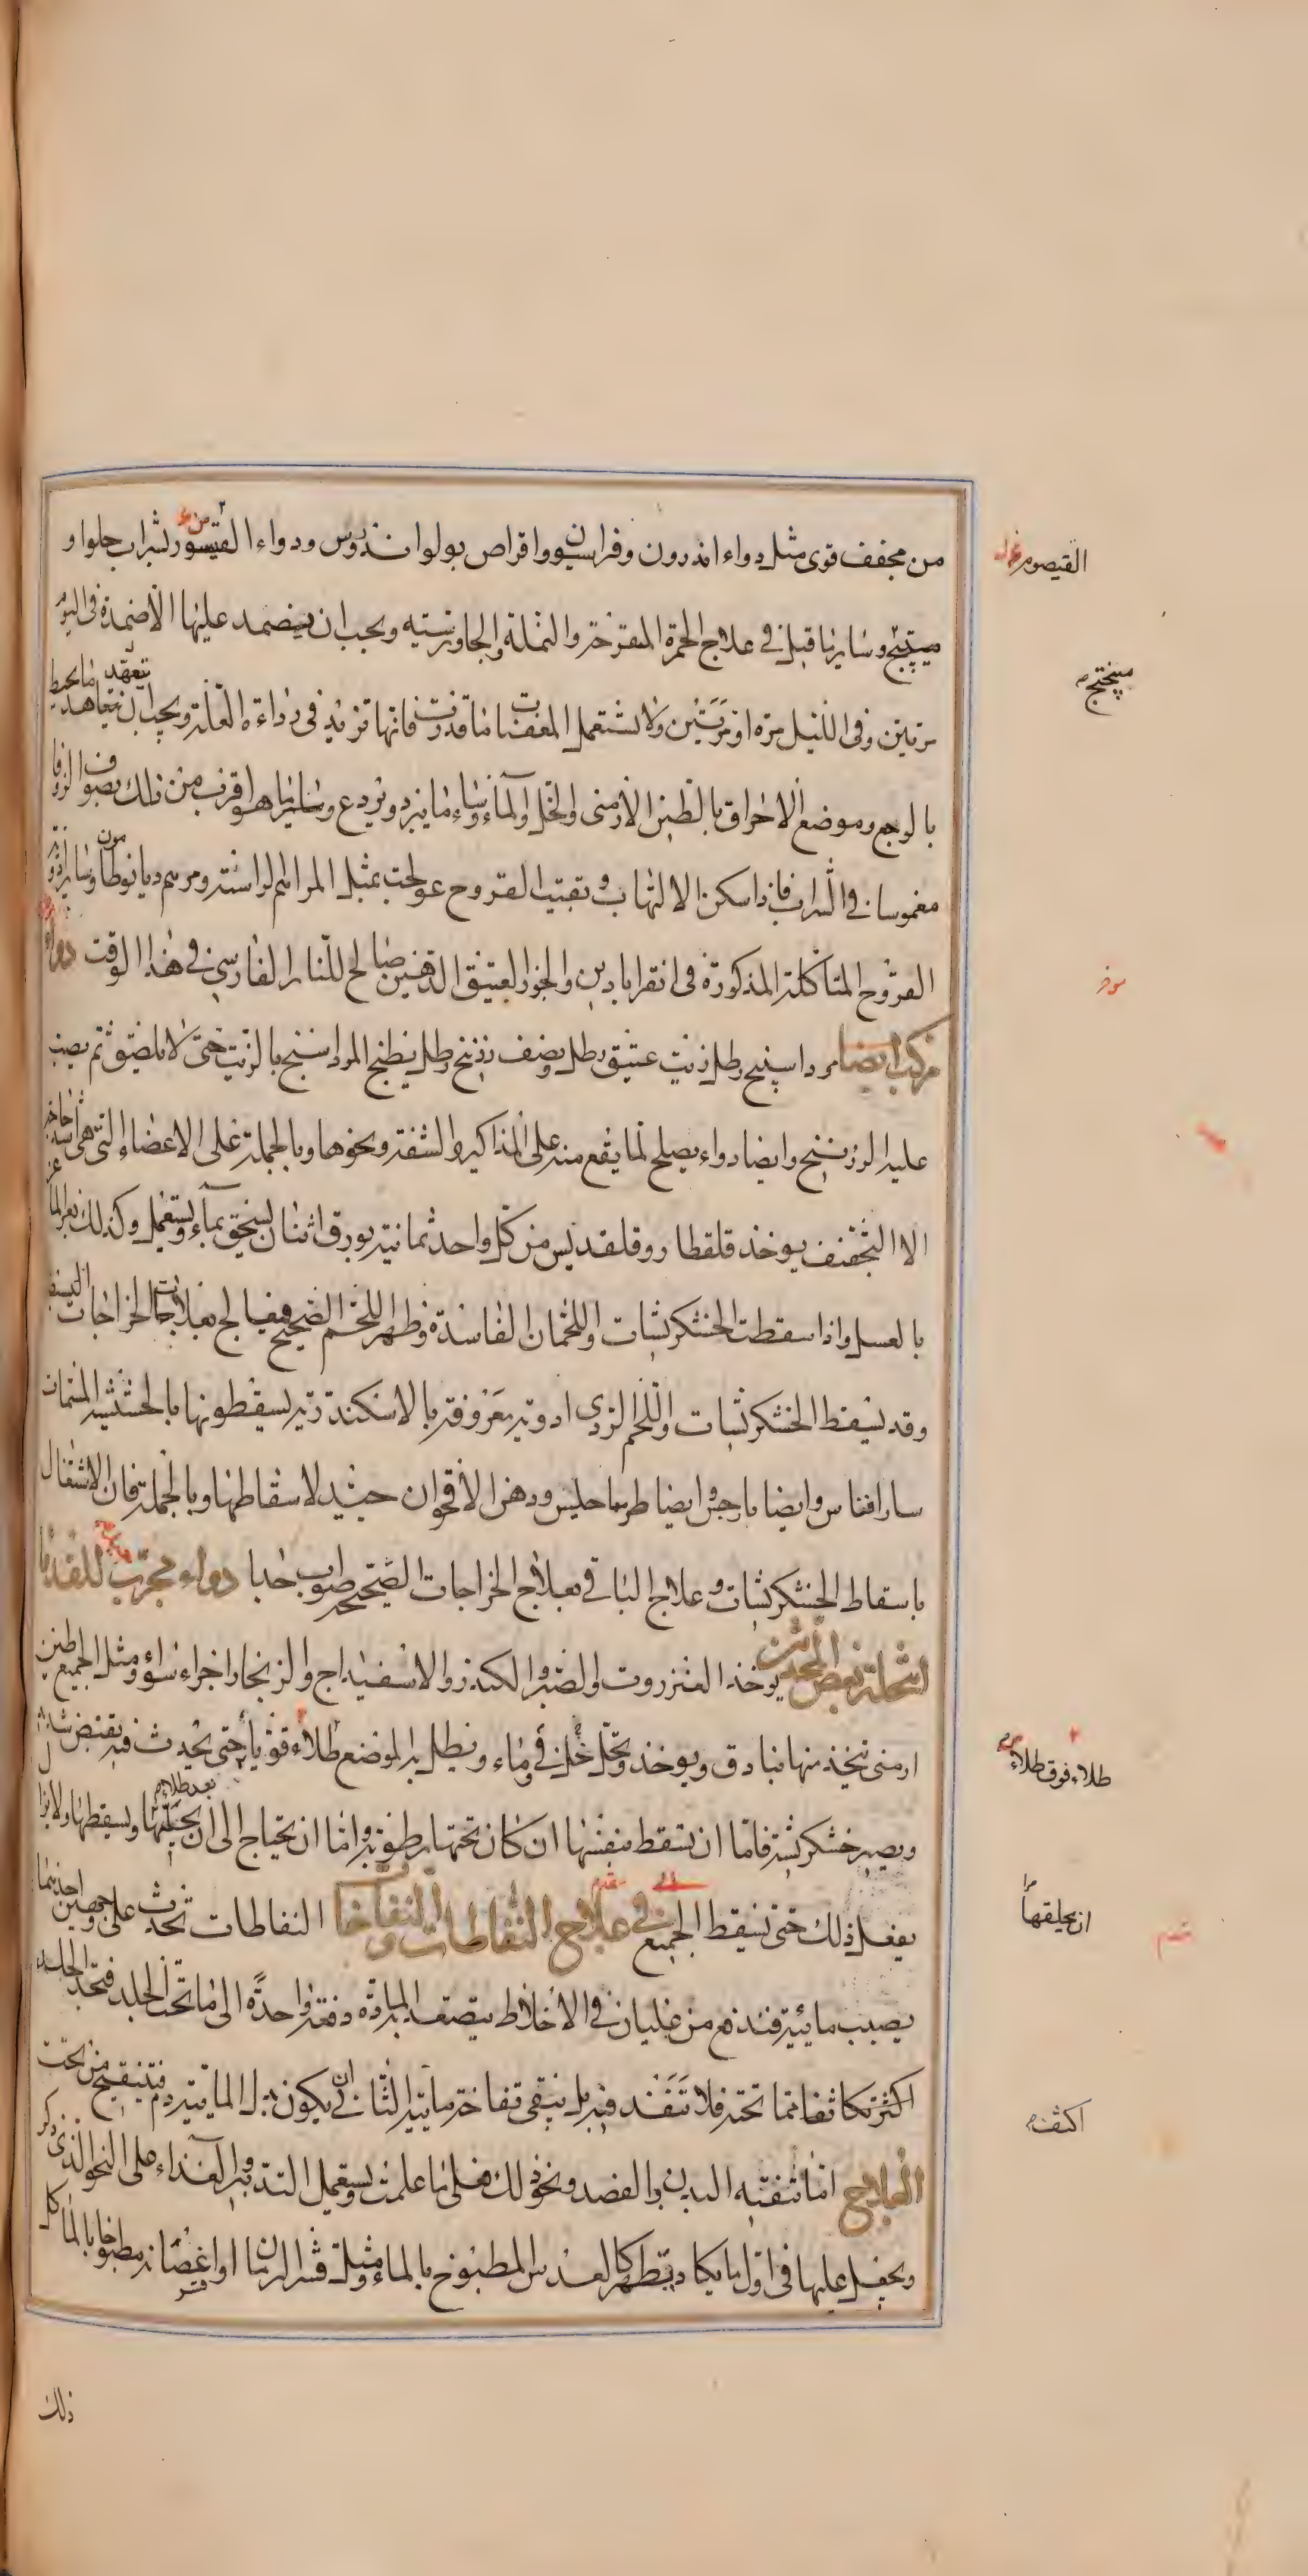 من مجفف قوى مثل دواء اندرون وفراسيون واقراص بولوا ندروس ودواء القيسور بشراب حلو او
ميپختج وساير ما قيل فى علاج الحمرة المتقرحة والنملة والجاورسيه ويجب ان يضمد عليها الاضمدة فى اليوم
مرتين وفى الليل مرة او مرتين ولا تستعمل المعفنات ما قدرت فانها تزيد فى رداءة العلة ويجب ان يتعاهد ما يحيط
بالوجع وموضع الاحراق بالطين الارمنى والخل والماء وساير ما يبرد ويردع وساير ما هو اقرب من ذلك بصوف الزوفا
مغموسا فى الشراب فاذا سكن الالتهاب وبقيت القروح عولجت بمثل المراهم الراسنية ومرهم ديانوطا وساير ادوية
القروح المتاكلة المذكورة فى انقراباديىن والجوز العتيق الدهنين صالح للنار الفارسى فى هذا الوقت دواء
مركب ايضا مرداسنج رطل زيت عتيق رطل ونصف زرنيخ رطل يطبخ المرداسنج بالزيت حتى لا يلصق ثم يصب
عليه الزرنيخ وايضا دواء يصلح لما يقع منه على المذاكير والشفة ونحوها وبالجملة على الاعضاء التى هى اشد حاجة
الا التجفيف يوخذ قلقطار وقلقديس من كل واحد ثمانية بورق اثنان يسحق بماء ويستعمل وكذلك بعر الماعز
بالعسل واذا سقطت الخشكريشات واللحمان الفاسدة وظهر اللحم الصحيح فيعالج بعلاجات الخراجات اليسيرة
وقد يسقط الخشكريشات واللحم الردى ادوية معروفة بالاسكندرية يسقطونها بالحشيشة المسماة
سارافياس وايضا بارجى وايضا طرماحليس ودهن الاقحوان حينئذ لاسقاطها وبالجملة فان الاشتغال
باسقاط الخشكريشات وعلاج الباقى بعلاج الخراجات الصحيحة صواب جدا دواء مجرب للقدماء
انتحله بعض المحدثين يوخذ العنزروت والصبر والكندر والاسفيداج والزنجار اجزاء سواء ومثل الجميع طين
ارمنى تتخذ منها بنادق ويوخذ وتحل فى خل وماء ويطلى به الموضع طلاء قويا حتى يحدث فيه تقبض شديد
ويصير خشكريشة فاما ان تسقط بنفسها ان كان تحتها رطوبة واما ان يحتاج الى ان يحيلها ويسقطها ولا يزال
يفعل ذلك حتى تسقط الجميع فى علاج النفاطات والنفاخات النفاطات تحدث على وجهين احدهما
بسبب مائية تندفع من غليان فى الاخلاط يتصعد به المادة دفعة واحدة الى ما تحت الجلد فتجد الجلد
اكثر تكاثفا مما تحته فلا تنفذ فيه بل تبقى نفاخة مائية الثانى ان يكون بدل المائية دم فتتقيح من تحت
العلاج اما تنقية البدن والفصد ونحو ذلك فعلى ما علمت ويستعمل التدبير والغذاء على النحو الذى ذكر
ويجعل عليها فى اول ما يكاد يتظهر كالعدس المطبوخ بالماء ومثله قشر الرمان او اغصانه مطبوخا بالماء كل
ذلك
القيصوم
ميپختج
طلاء فوق طلاء
ان يحلقها مرا
اكثف